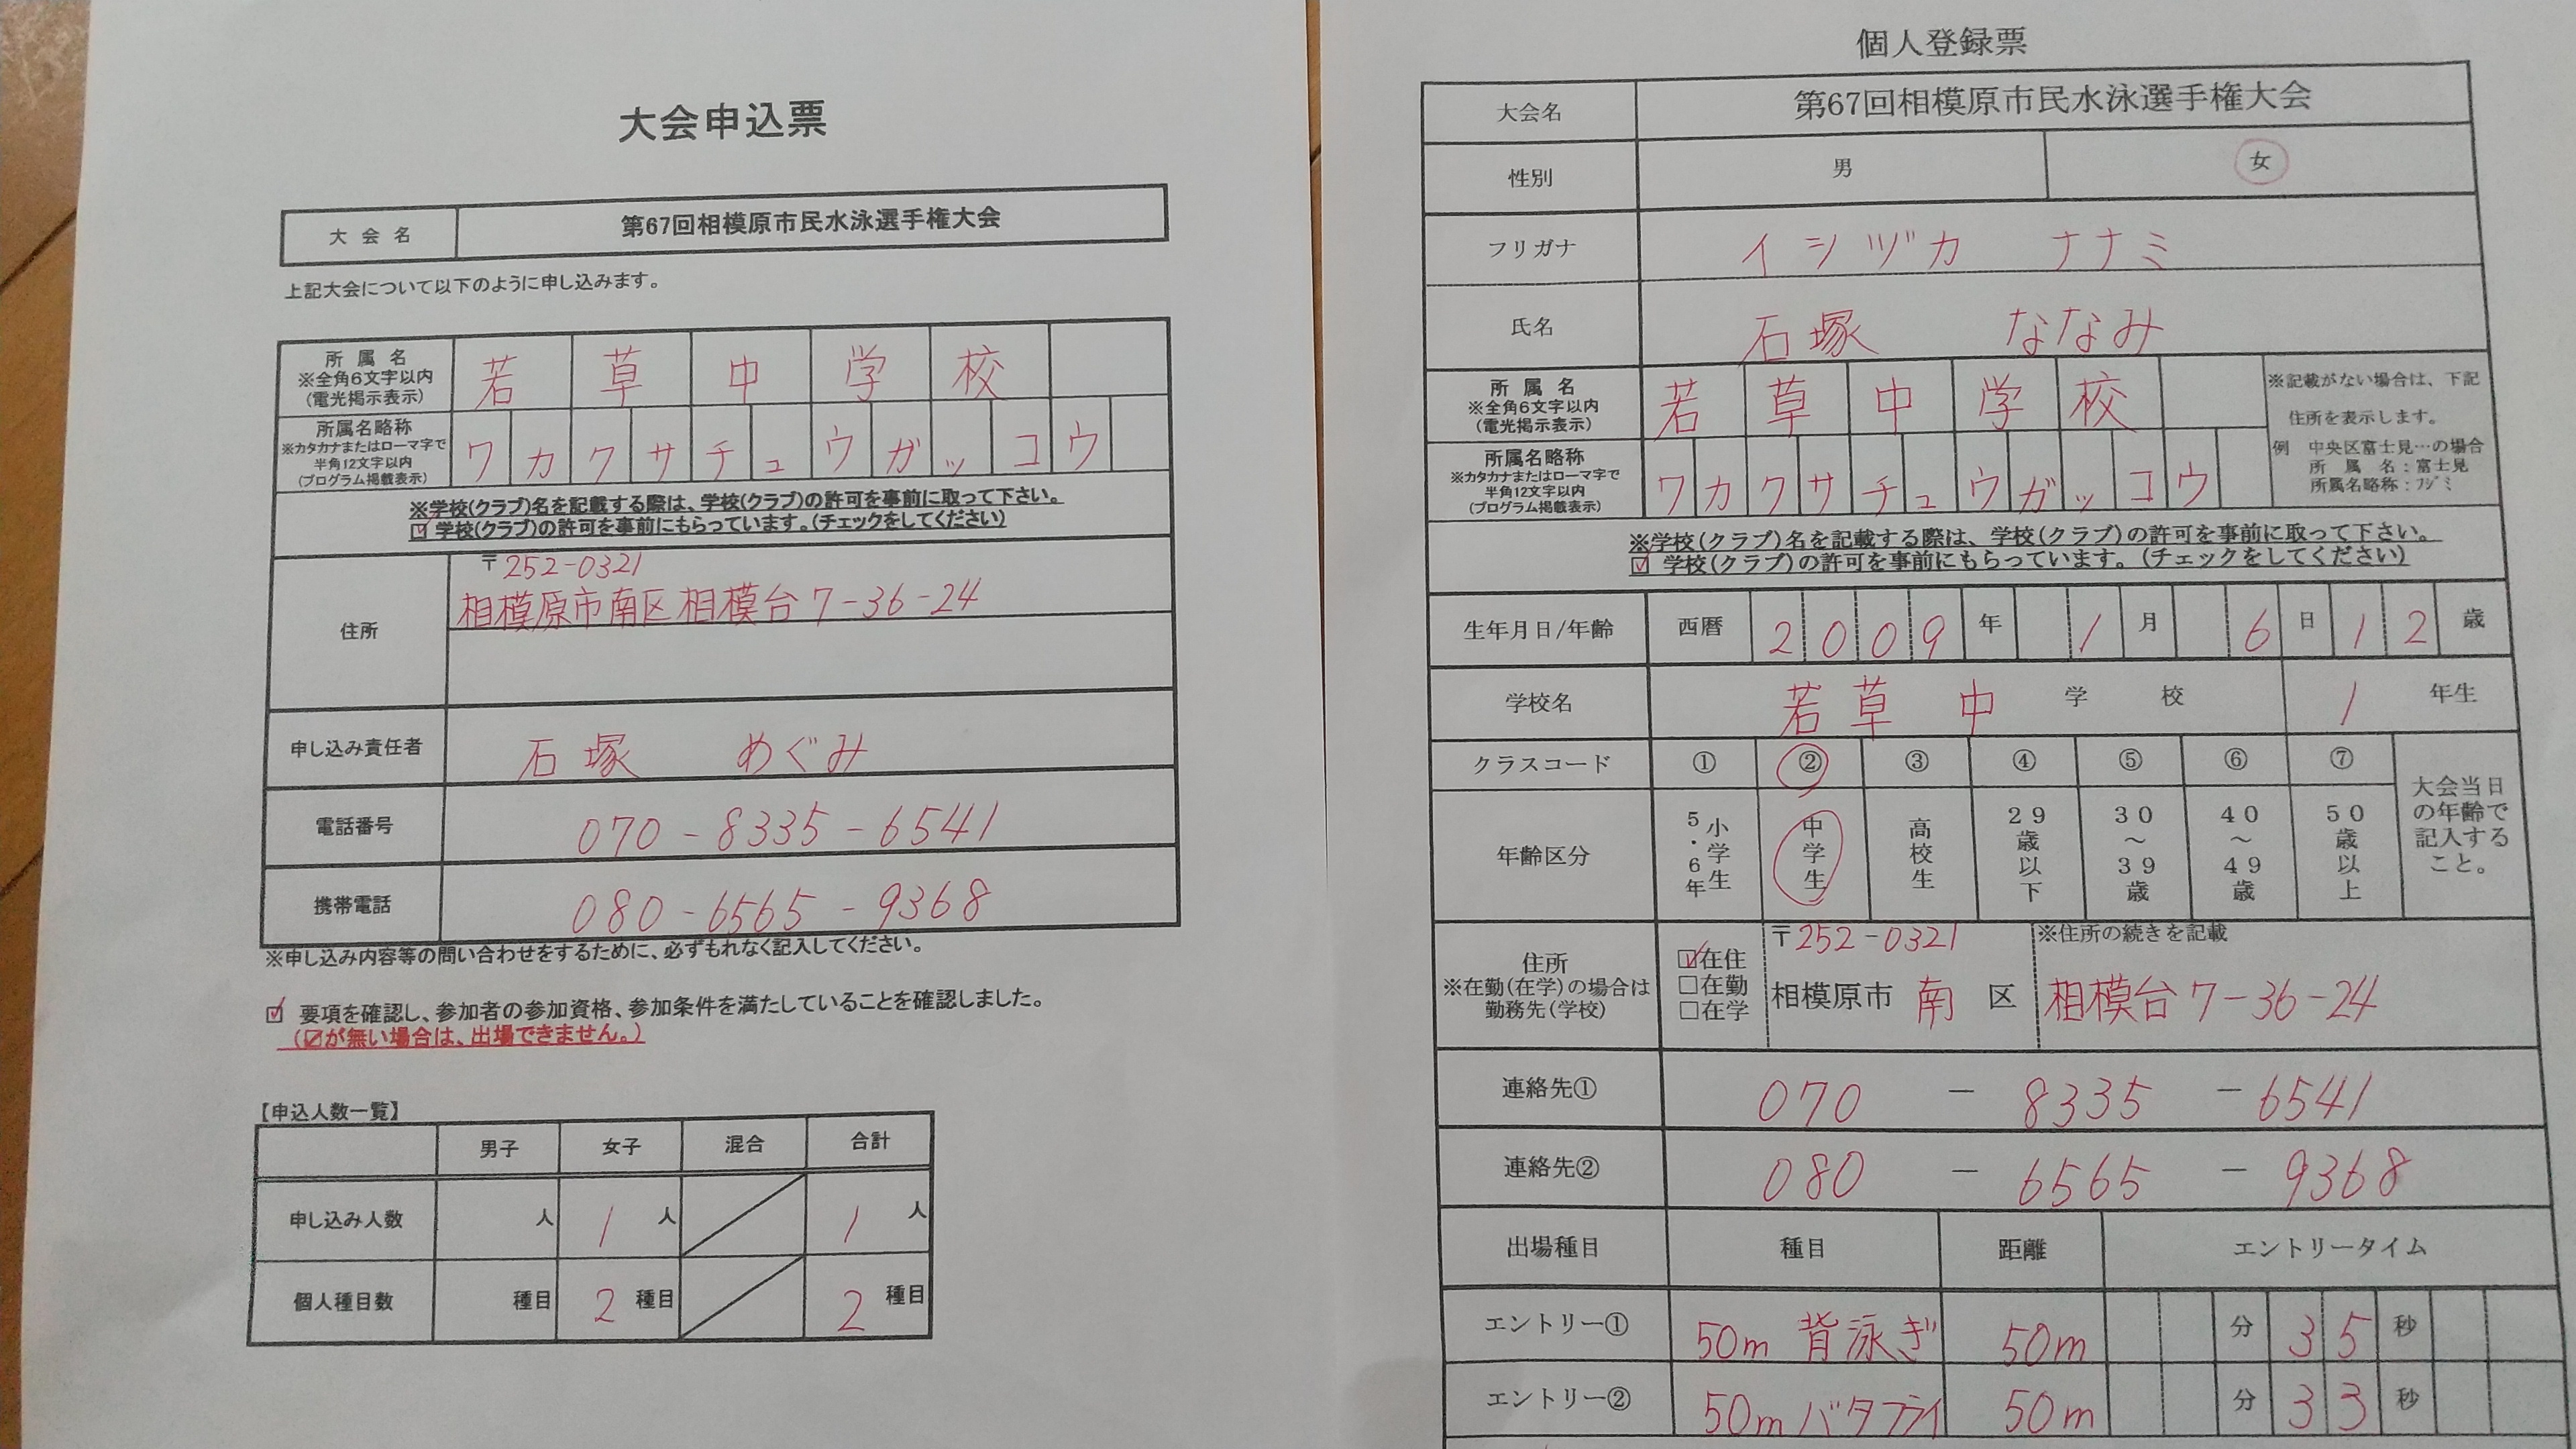 大会申込票
大会名 第67回相模原市民水泳選手権大会
上記大会について以下のように申し込みます。
所属名
※全角6文字以内
(電光掲示表示)
若草中学校
所属名略称
※カタカナまたはローマ字で
半角12文字以内
(プログラム掲載表示)
ワカクサチュウガッコウ
※学校(クラブ)名を記載する際は、学校(クラブ)の許可を事前に取って下さい。
☑ 学校(クラブ)の許可を事前にもらっています。(チェックをしてください)
住所
〒252-0321
相模原市南区相模台7-36-24
申し込み責任者 石塚 めぐみ
電話番号 070-8335-6541
携帯電話 080-6565-9368
※申し込み内容等の問い合わせをするために、必ずもれなく記入してください。
☑ 要項を確認し、参加者の参加資格、参加条件を満たしていることを確認しました。
(☑が無い場合は、出場できません。)
【申込人数一覧】
男子 女子 混合 合計
申し込み人数 人 1人 1人
個人種目数 種目 2種目 2種目
個人登録票
大会名 第67回相模原市民水泳選手権大会
性別 男 女
フリガナ イシヅカ ナナミ
氏名 石塚 ななみ
所属名
※全角6文字以内
(電光掲示表示)
若草中学校
所属名略称
※カタカナまたはローマ字で
半角12文字以内
(プログラム掲載表示)
ワカクサチュウガッコウ
※記載がない場合は、下記
住所を表示します。
例 中央区富士見…の場合
所属名:富士見
所属名略称:フジミ
※学校(クラブ)名を記載する際は、学校(クラブ)の許可を事前に取って下さい。
☑ 学校(クラブ)の許可を事前にもらっています。(チェックをしてください)
生年月日/年齢 西暦 2009年 1月 6日 12歳
学校名 若草中学校 1年生
クラスコード ① ② ③ ④ ⑤ ⑥ ⑦
年齢区分 小学生5・6年 中学生 高校生 29歳以下 30~39歳 40~49歳 50歳以上
大会当日
の年齢で
記入する
こと。
住所
※在勤(在学)の場合は
勤務先(学校)
☑在住
□在勤
□在学
〒252-0321
相模原市 南 区
※住所の続きを記載
相模台7-36-24
連絡先① 070 - 8335 - 6541
連絡先② 080 - 6565 - 9368
出場種目 種目 距離 エントリータイム
エントリー① 50m 背泳ぎ 50m 分 35秒
エントリー② 50m バタフライ 50m 分 33秒